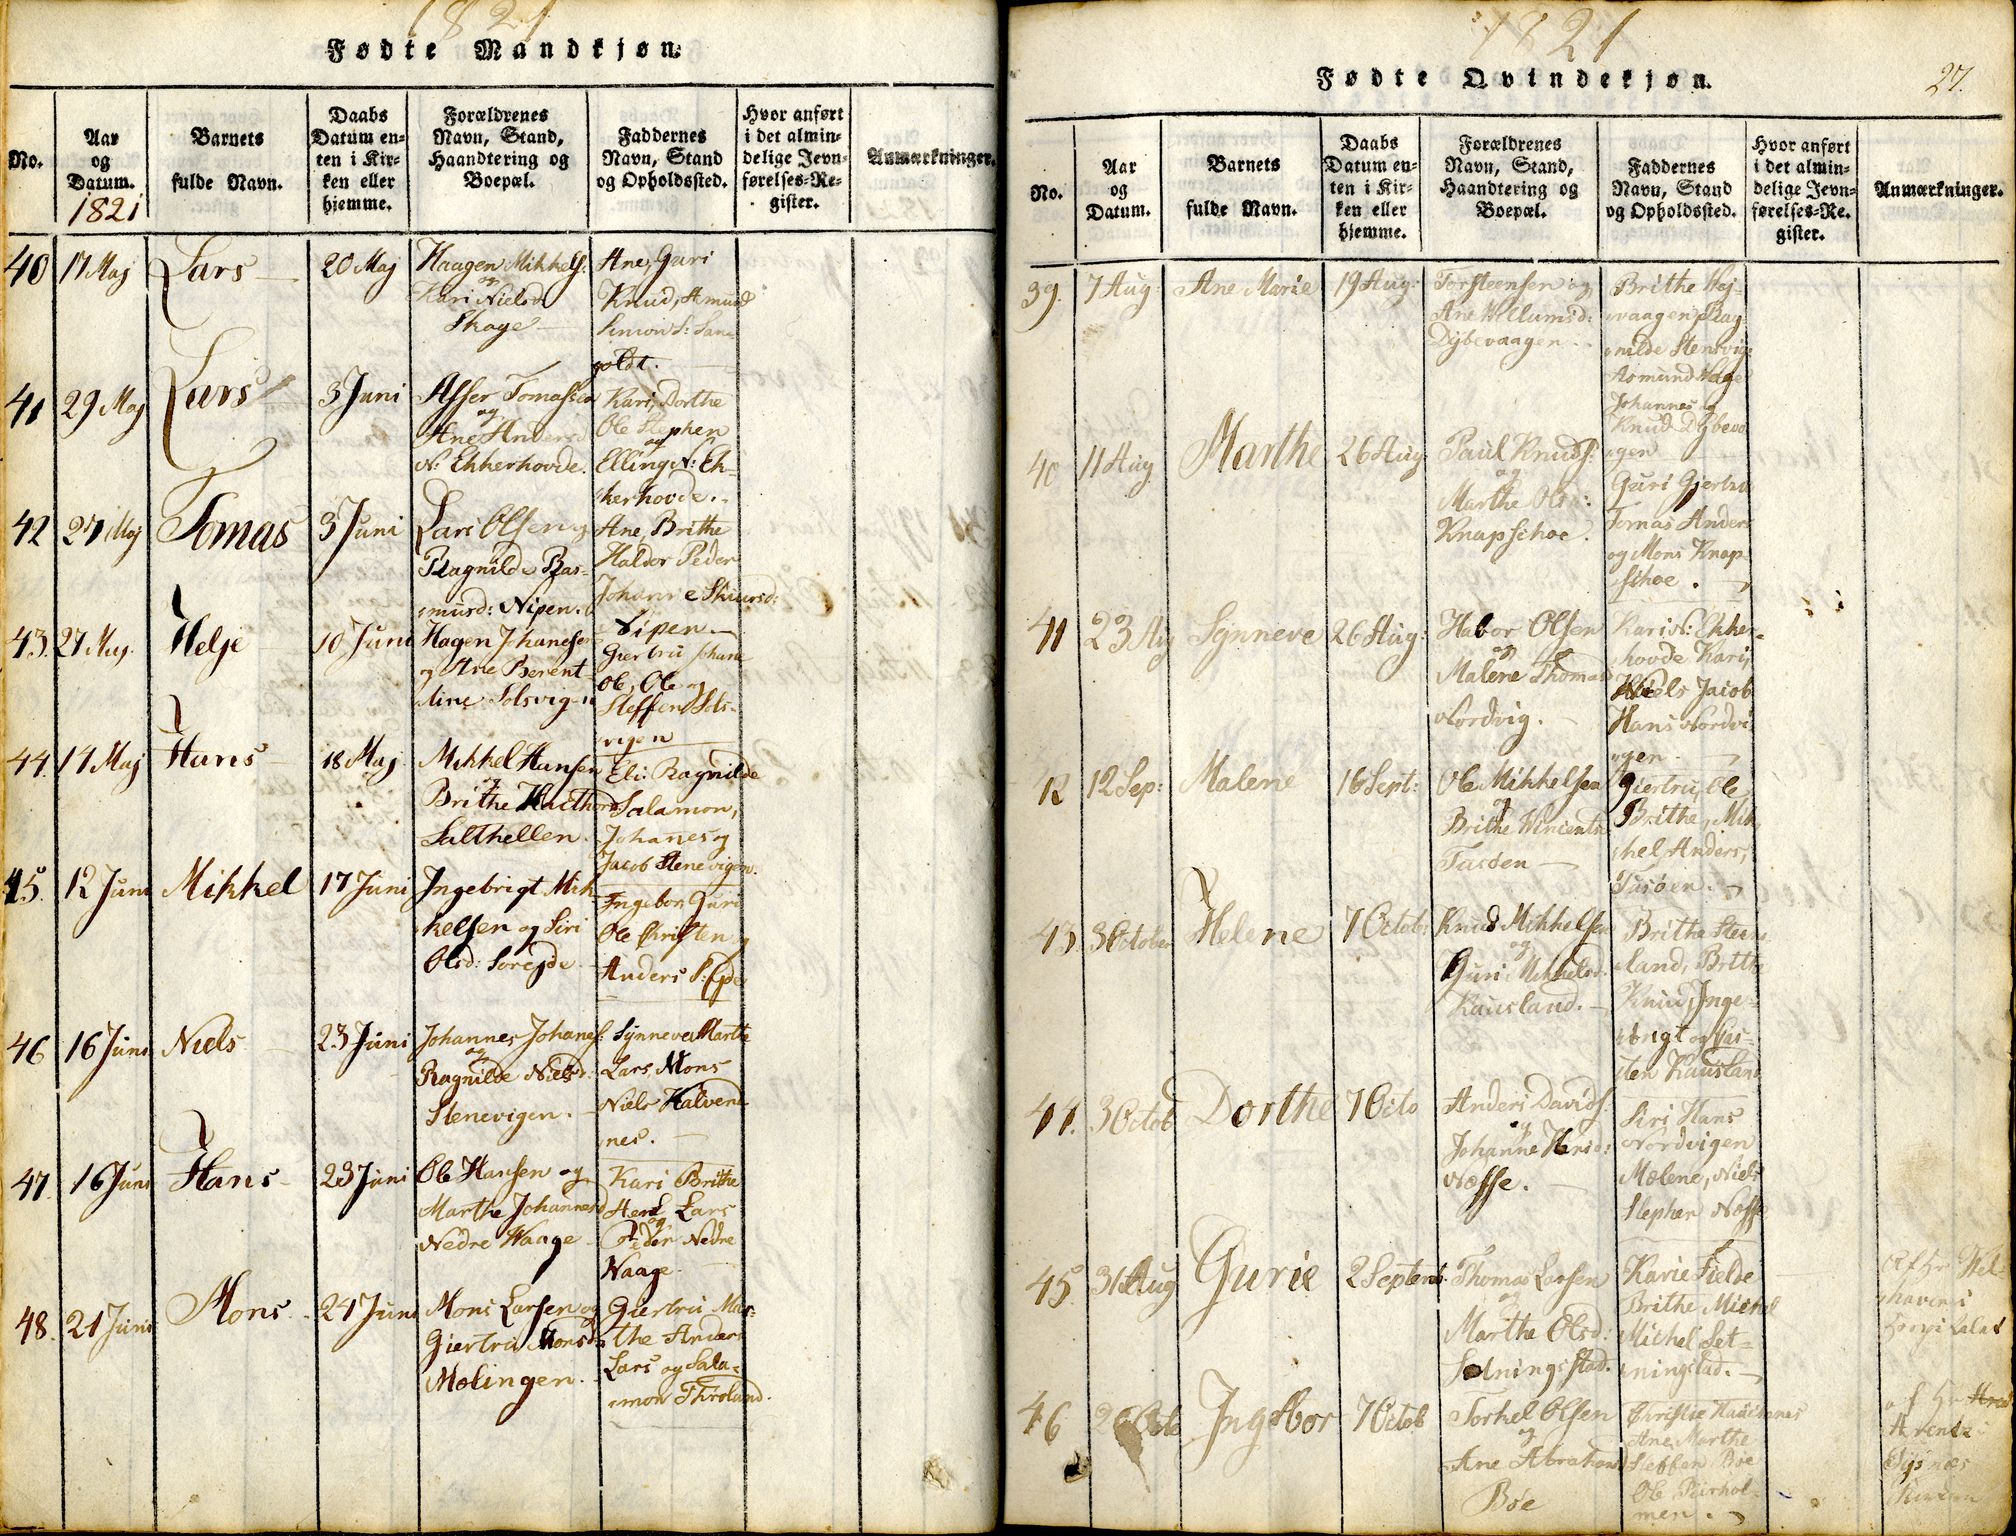 1821
Fødte Mandkjøn.
No.
Aar
og
Datum.
1821
Barnets
fulde Navn.
Daabs
Datum en-
ten i Kir-
ken eller
hjemme.
Forældrenes
Navn, Stand,
Haandtering og
Boepæl.
Faddernes
Navn, Stand
og Opholdssted.
Hvor anført
i det almin-
delige Jevn-
førelses-Re-
gister.
Anmærkninger.
40
17 Maj
Lars
20 Maj
Haagen Mikkels:
og
Kari Nielsd
Skage
Ane, Guri
Knud, Amund
Simon S:
41
29 Maj
Lars
3 Juni
Asser Tomassen
og
Ane Andersd
N: Ekkerhovde.
Kari, Dorthe
Ole Stephen
og
Elling N: Ek-
kerhovde.
42
27 Maj
Tomas
3 Juni
Lars Olsen og
Ragnilde Ras-
musd: Nipen.
Ane, Brithe
Haldor Peder
Johanne
Nipen
43.
27 Maj
Helje
10 Juni
Hagen Johanesen
og Ane Berent-
dine Solsvig-n
Giertru Johane
Ole, Ole og
Steffen Sols-
vigen
44.
14 Maj
Hans
18 Maj
Mikkel Hansen
og
Brithe
Salthellen.
Eli: Ragnilde
Salamon,
Johanes og
Jacob Stenevigen.
45.
12 Juni
Mikkel
17 Juni
Ingebrigt Mik-
kelsen og Siri
Olsd: Sorejde
Ingebor, Guri
Ole Christen og
Anders
46
16 Juni
Niels
23 Juni
Johannes Johanes:
og
Ragnilde Nielsd:
Stenevigen.
Synneve Marthe
Lars Mons
Niels Kalvene
nes.
47.
16 Juni
Hans
23 Juni
Ole Hansen og
Marthe Johannesd
Nedre Waage
Kari Brithe
Lars
og
Peder Nedre
Waage
48.
21 Juni
Mons
24 Juni
Mons Larsen og
Giertru Monsd
Mølingen.
Giertru Mar-
the Anders
Lars og Sala-
mon Throland.
1821
27.
Fødte Qvindekjøn.
No.
Aar
og
Datum.
Barnets
fulde Navn.
Daabs
Datum en-
ten i Kir-
ken eller
hjemme.
Forældrenes
Navn, Stand,
Haandtering og
Boepæl.
Faddernes
Navn, Stand
og Opholdssted.
Hvor anført
i det almin-
delige Jevn-
førelses-Re.
gister.
Anmærkninger.
39.
7 Aug:
Ane Marie
19 Aug:
Torsteensen og
Ane Wllumsd:
Dybevaagen
Brithe Høj-
vaagen Rag-
nilde Stensvig
Asmund
Johannes og
Knud Dybevaa
gen
40
11 Aug
Marthe
26 Aug
Paul Knuds:
og
Marthe Olsd:
Knapschoe.
Guri Gjertru
Tomas Anders
og Mons Knap-
schoe.
41
23 Aug
Synneve
26 Aug:
Habor Olsen
og
Malene Thomas
Nordvig.
Kari N: Ekker-
hovde Kari,
Niels Jacob
Hans Nordvi-
gen
42
12 Sep:
Malene
16 Sept:
Ole Mikkelsen
og
Brithe Winientsd
Tasøen
Giertru, Ole
Brithe, Mik-
kel Anders,
Tasøen.
43.
3 October
Helene
7 Octob:
Knud Mikkelsen
og
Guri Mikkelsd.
Kausland.
Brithe Steens-
land, Brithe
Knud, Inge-
brigt og Cas-
ten Kausland
44.
3 Octob
Dorthe
7 Octo
Anders Davids:
og
Johanne Hansd:
Nesse.
Siri Hans
Nordvigen
Malene, Niels
Stephen Nesse
45
31 Aug
Gurie
2 Septemb.
Thomas Larsen
og
Marthe Olsd:
Setningstad.
Karie Fielde
Brithe Michel
Michel Set-
ningstad.
af Hr Wel-
havens
46
Octo
Ingebor
7 Octob
Torkel Olsen
og
Ane Abraham
Bøe
Christie
Ane, Marthe
Steffen Bøe
Ole
men.
af Hr
Arentz i
Kirken